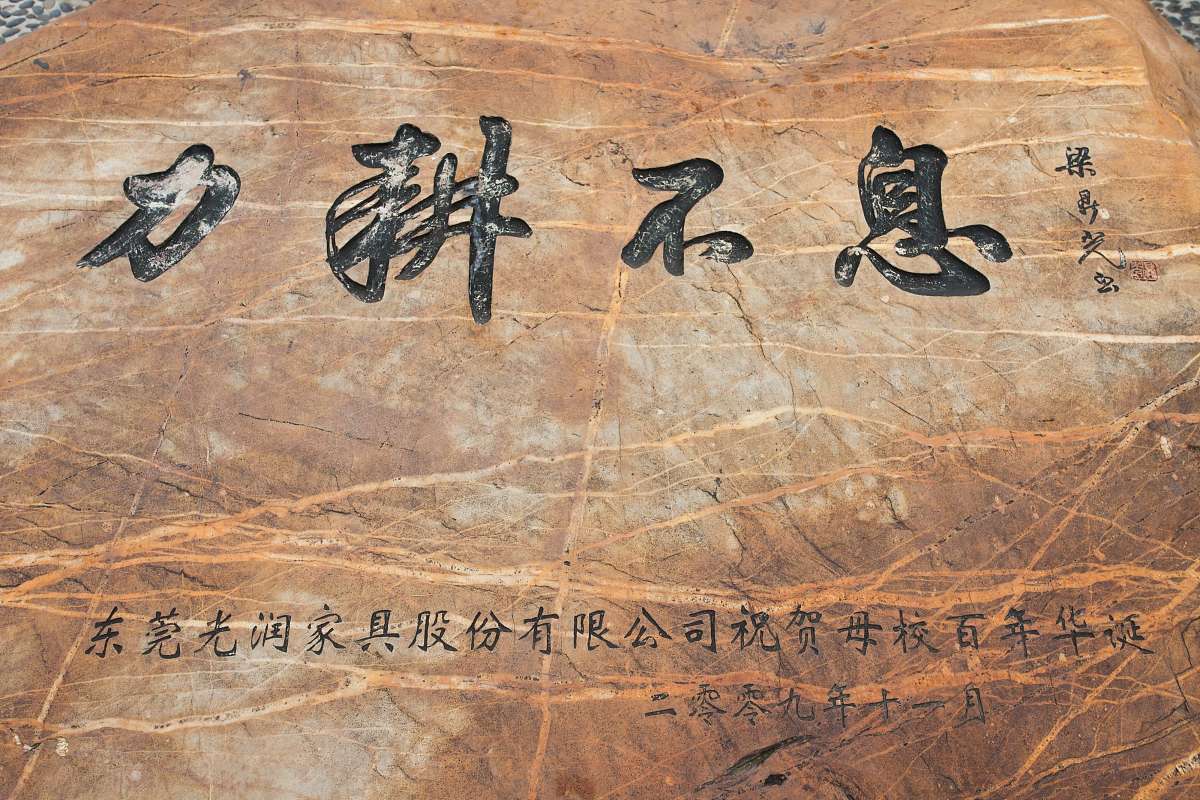 力耕不息
梁鼎光书
东莞光润家具股份有限公司祝贺母校百年华诞
二零零九年十一月